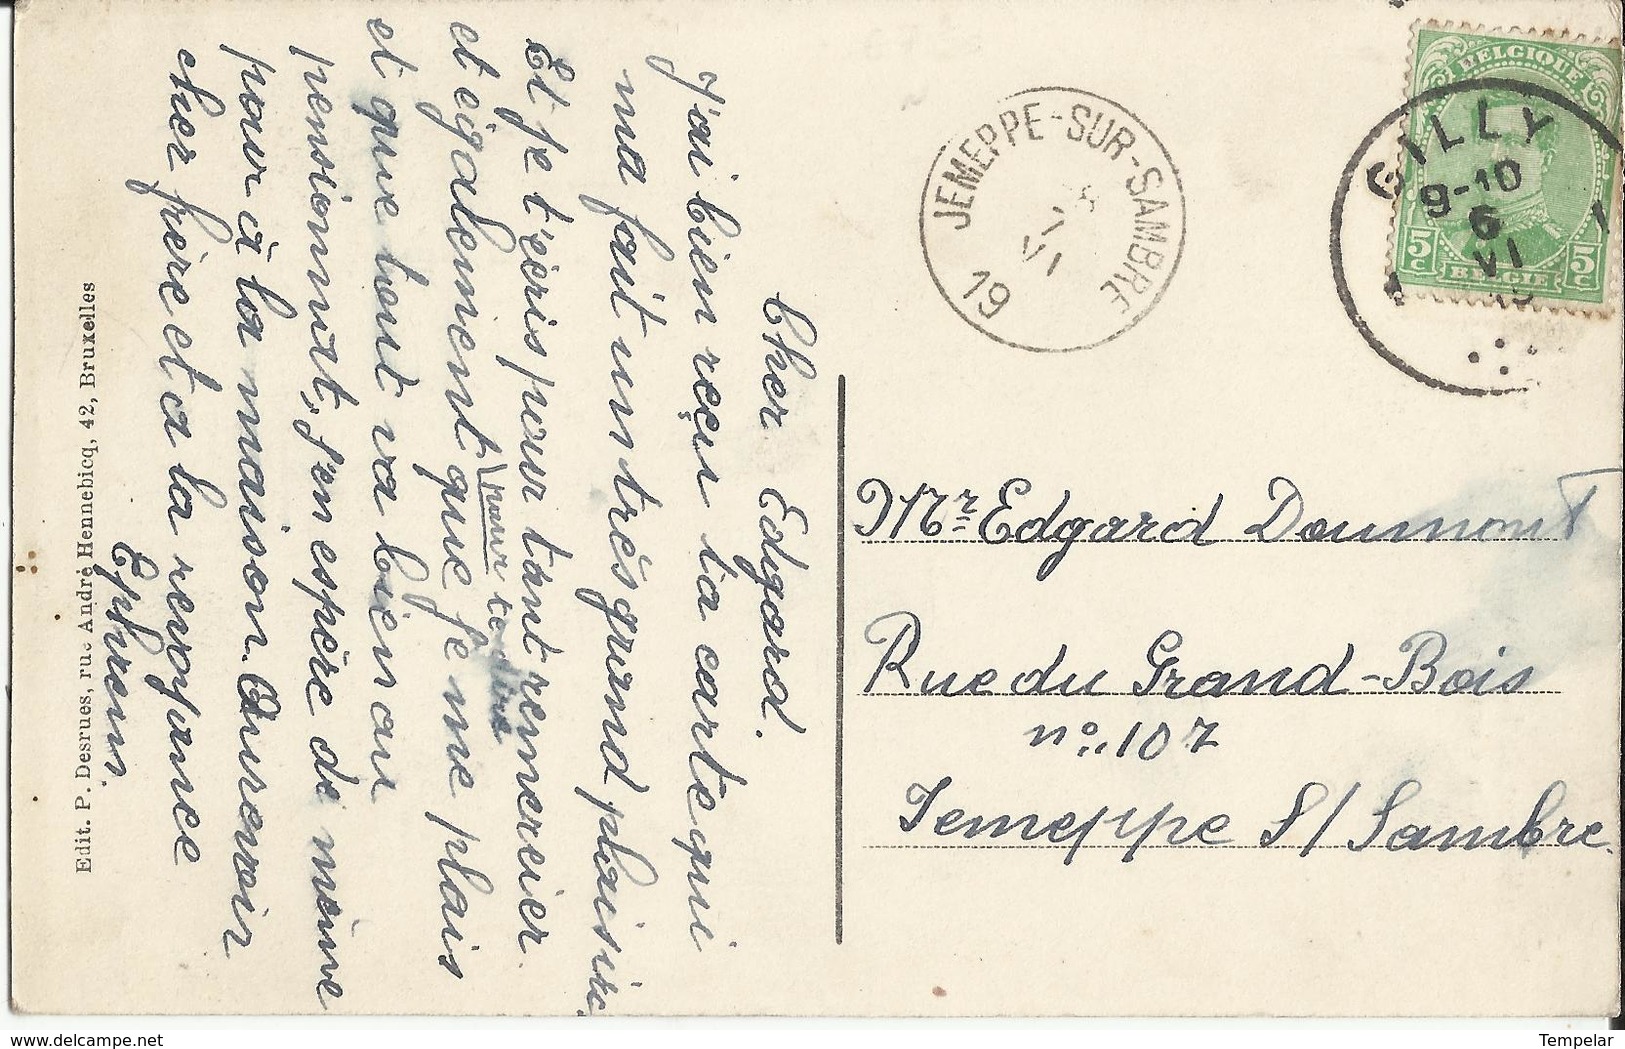 Cher Edgard.
J'ai bien reçu ta carte qui
ma fait un très grand plaisir.
Et je t'écris pour tant remercier.
et egalement que je me plais
pour te dire
et que tout va bien au
pensionnat, j'en espère de même
pour à la maison. Aurevoir
cher frère et a la revoyance
Ephrem.
Edit. P. Desrues, rue André Hennebicq, 42, Bruxelles
JEMEPPE-SUR-SAMBRE
VI
19
BELGIQUE
GILLY
9-10
6
VI
1
5c BELGIE 5c
Mr Edgard Doumont
Rue du Grand-Bois
n° 107
Jemeppe S/Sambre
delcampe.net
Tempelar